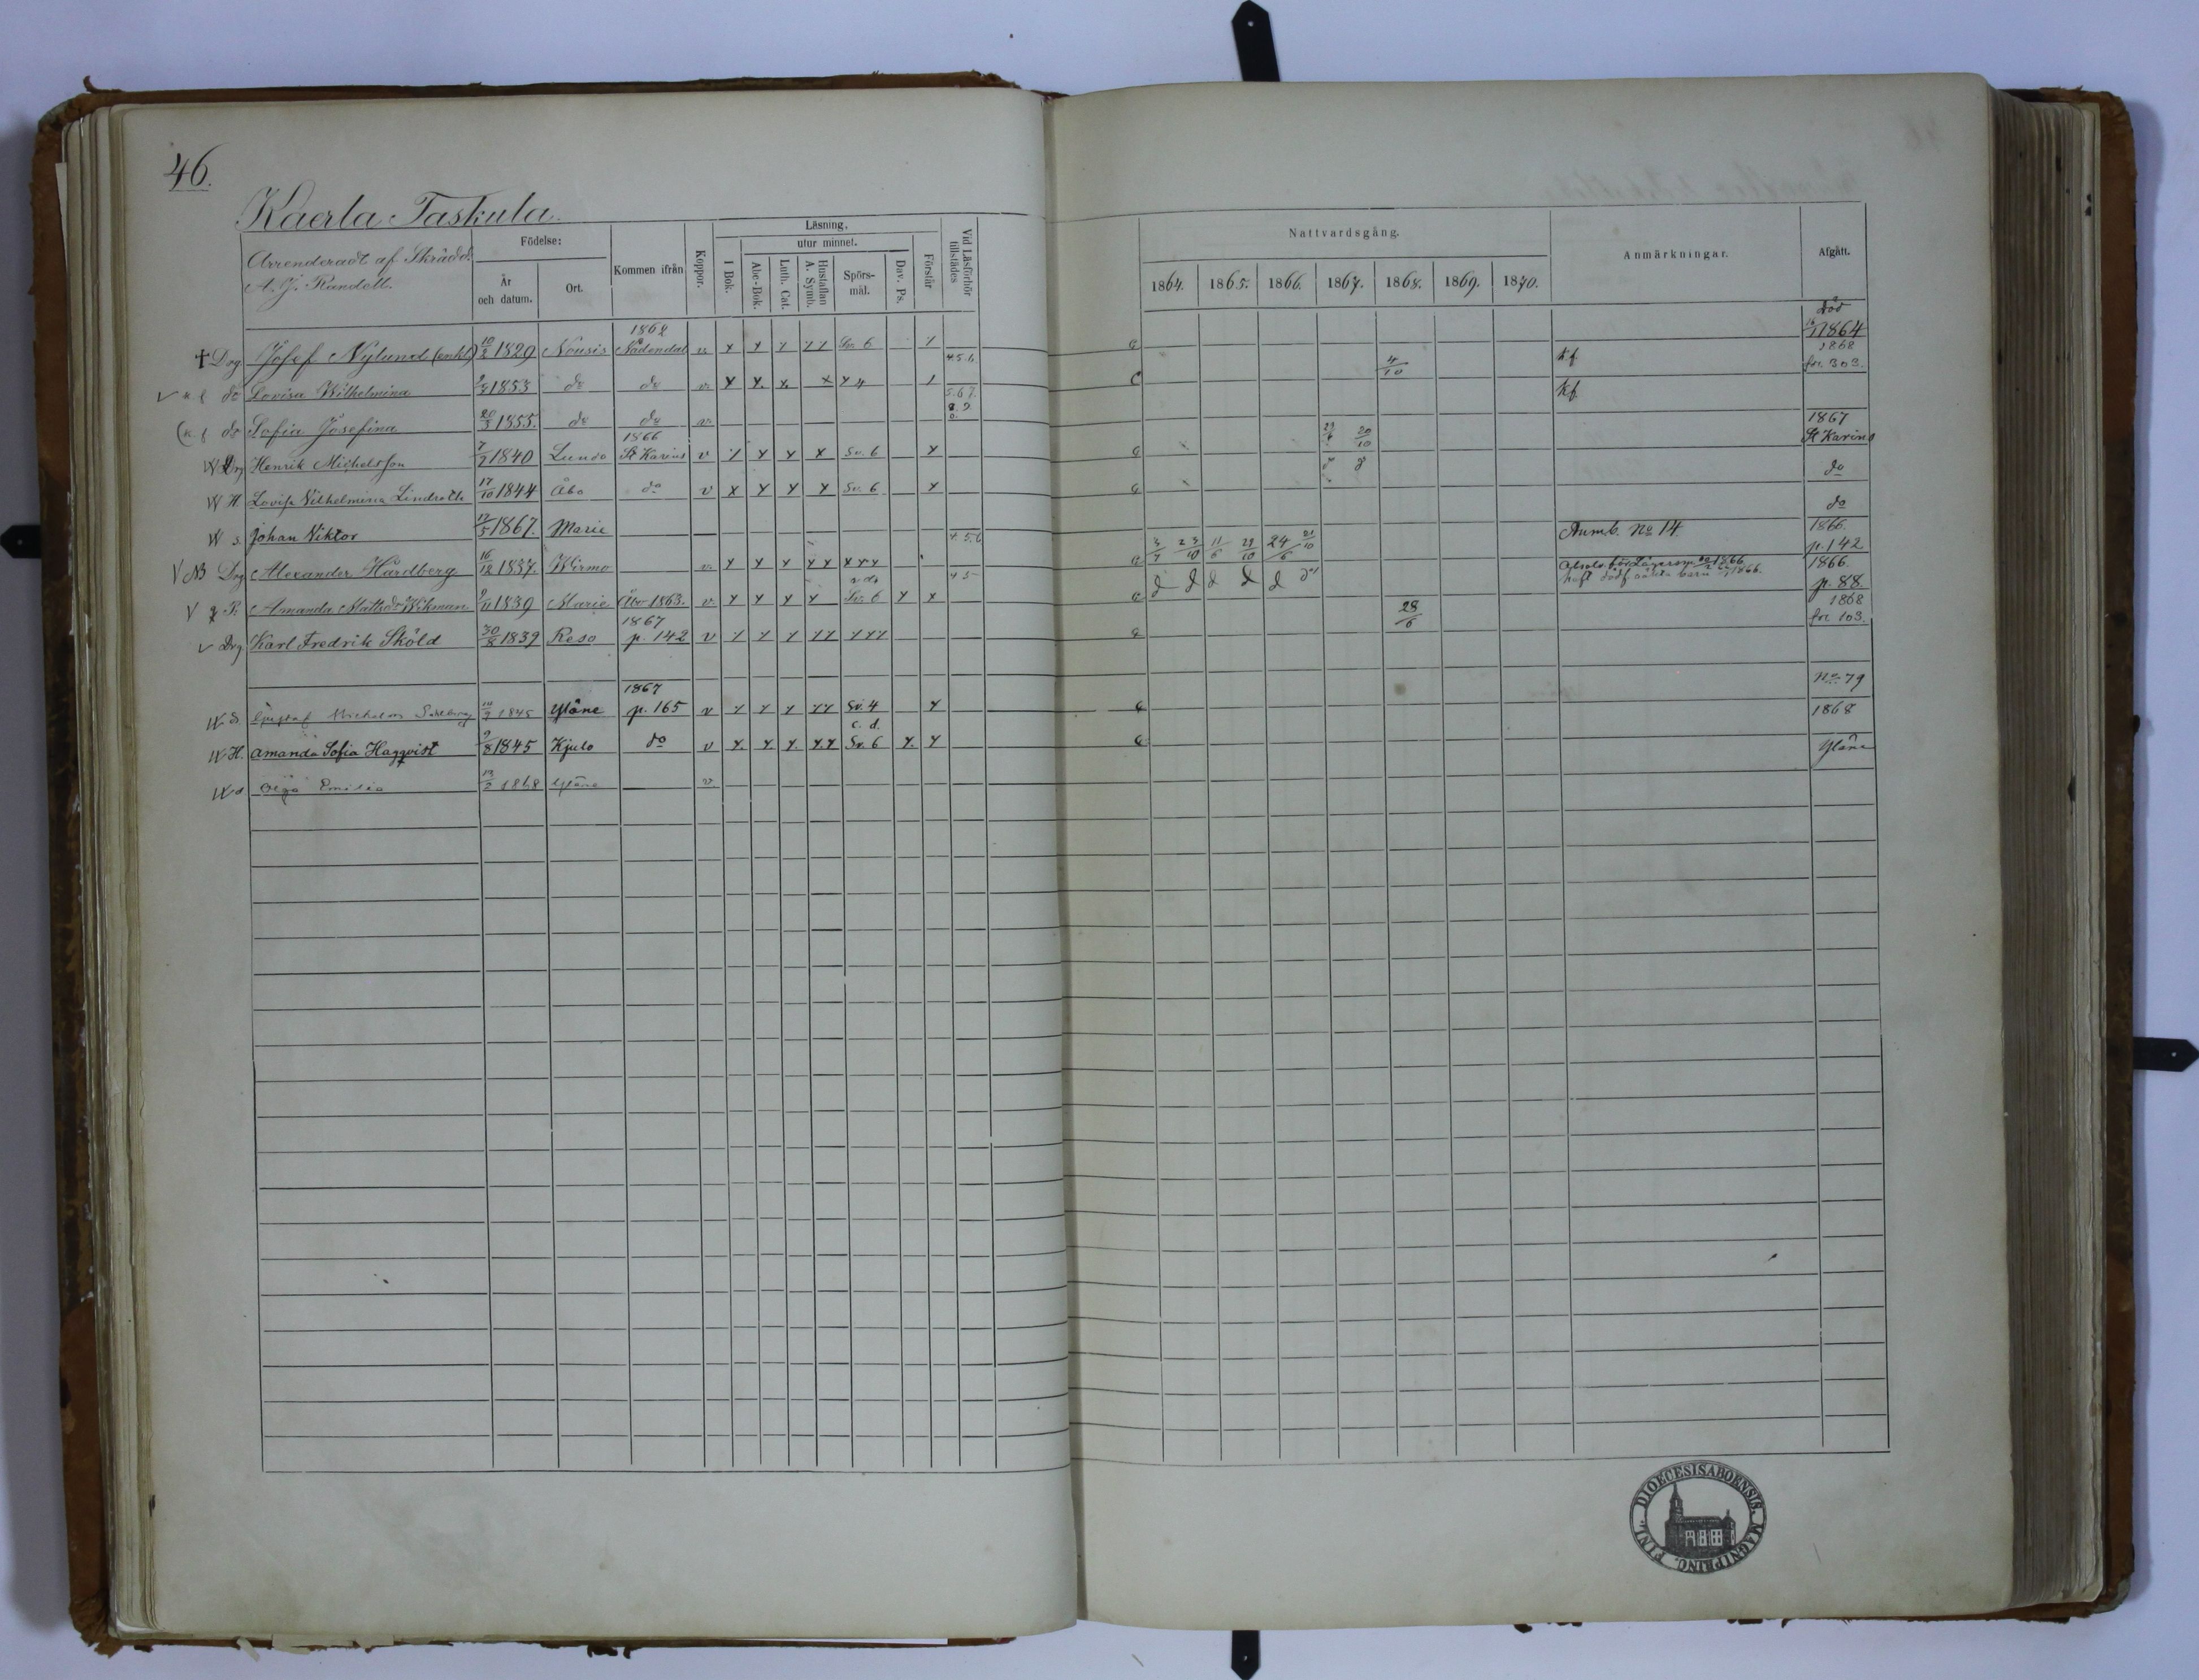 46.
Kaerla Taskula.
Arrenderadt af Skrädd.
A. J. Randell.
Födelse:
År och datum.
Ort.
Kommen ifrån
Koppor.
Läsning.
utur minnet.
I Bok.
Abc-Bok.
Luth. Cat.
Hustaflan A. Symb.
Spörs-mål.
Dav. Ps.
Förstår
Vid Läsförhör tillstädes
Nattvardsgång.
1864. 1865. 1866. 1867. 1868. 1869. 1870.
Anmärkningar.
Afgått.
† Drg Josef Nylund (enkl) 10/2 1829 Nousis 1862 Nådendal v. x x x x x Sv. 6 x död 16/1 1864
do Lovisa Wilhelmina 1853 do do v. x x. x. x x 4 4.5.6. 4/10 kf. 1868 fr. 303.
do Sofia Josefina 20/3 1855. do do v. 5.6.7. 8.9. kf.
Drg Henrik Michelsson 7/2 1840 Lundo 1866 St Karins v x x x x Sv. 6 x 20/10 1867 St Karins
H. Lovisa Vilhelmina Lindroth 17/10 1844 Åbo do v x x x x Sv. 6 x do
s. Johan Viktor 17/5 1867. Marie do
NB Drg Alexander Hårdberg 16/12 1837. Wirmo v. x x x x x x x x 4.5.6 23/10 11/6 29/10 24/6 21/10 Anmb. No 14 1866. p. 142
Amanda Mathda Wikman 9/11 1839 Marie Åbo 1863. v. x x x x Sv. 6 x x 4 5 1866. 1866. p. 88.
Drg Karl Fredrik Sköld 30/8 1839 Reso 1867 p. 142 v x x x x x x x x 28/6 1868 fr. 103.
S. Gustaf Michelss Sahlberg 10/7 1845 Yläne 1867 p. 165 v x x x x x Sv. 4 x No 79
H. Amanda Sofia Hagqvist 9/8 1845 Kjulo do v x. x. x. x.x c. d. Sv. 6 x. x 1868
Olga Emilia 13/2 1868 Yläne v. Yläne
DIOECESIS ABOENSIS. MAGNI PRINC. FINL.